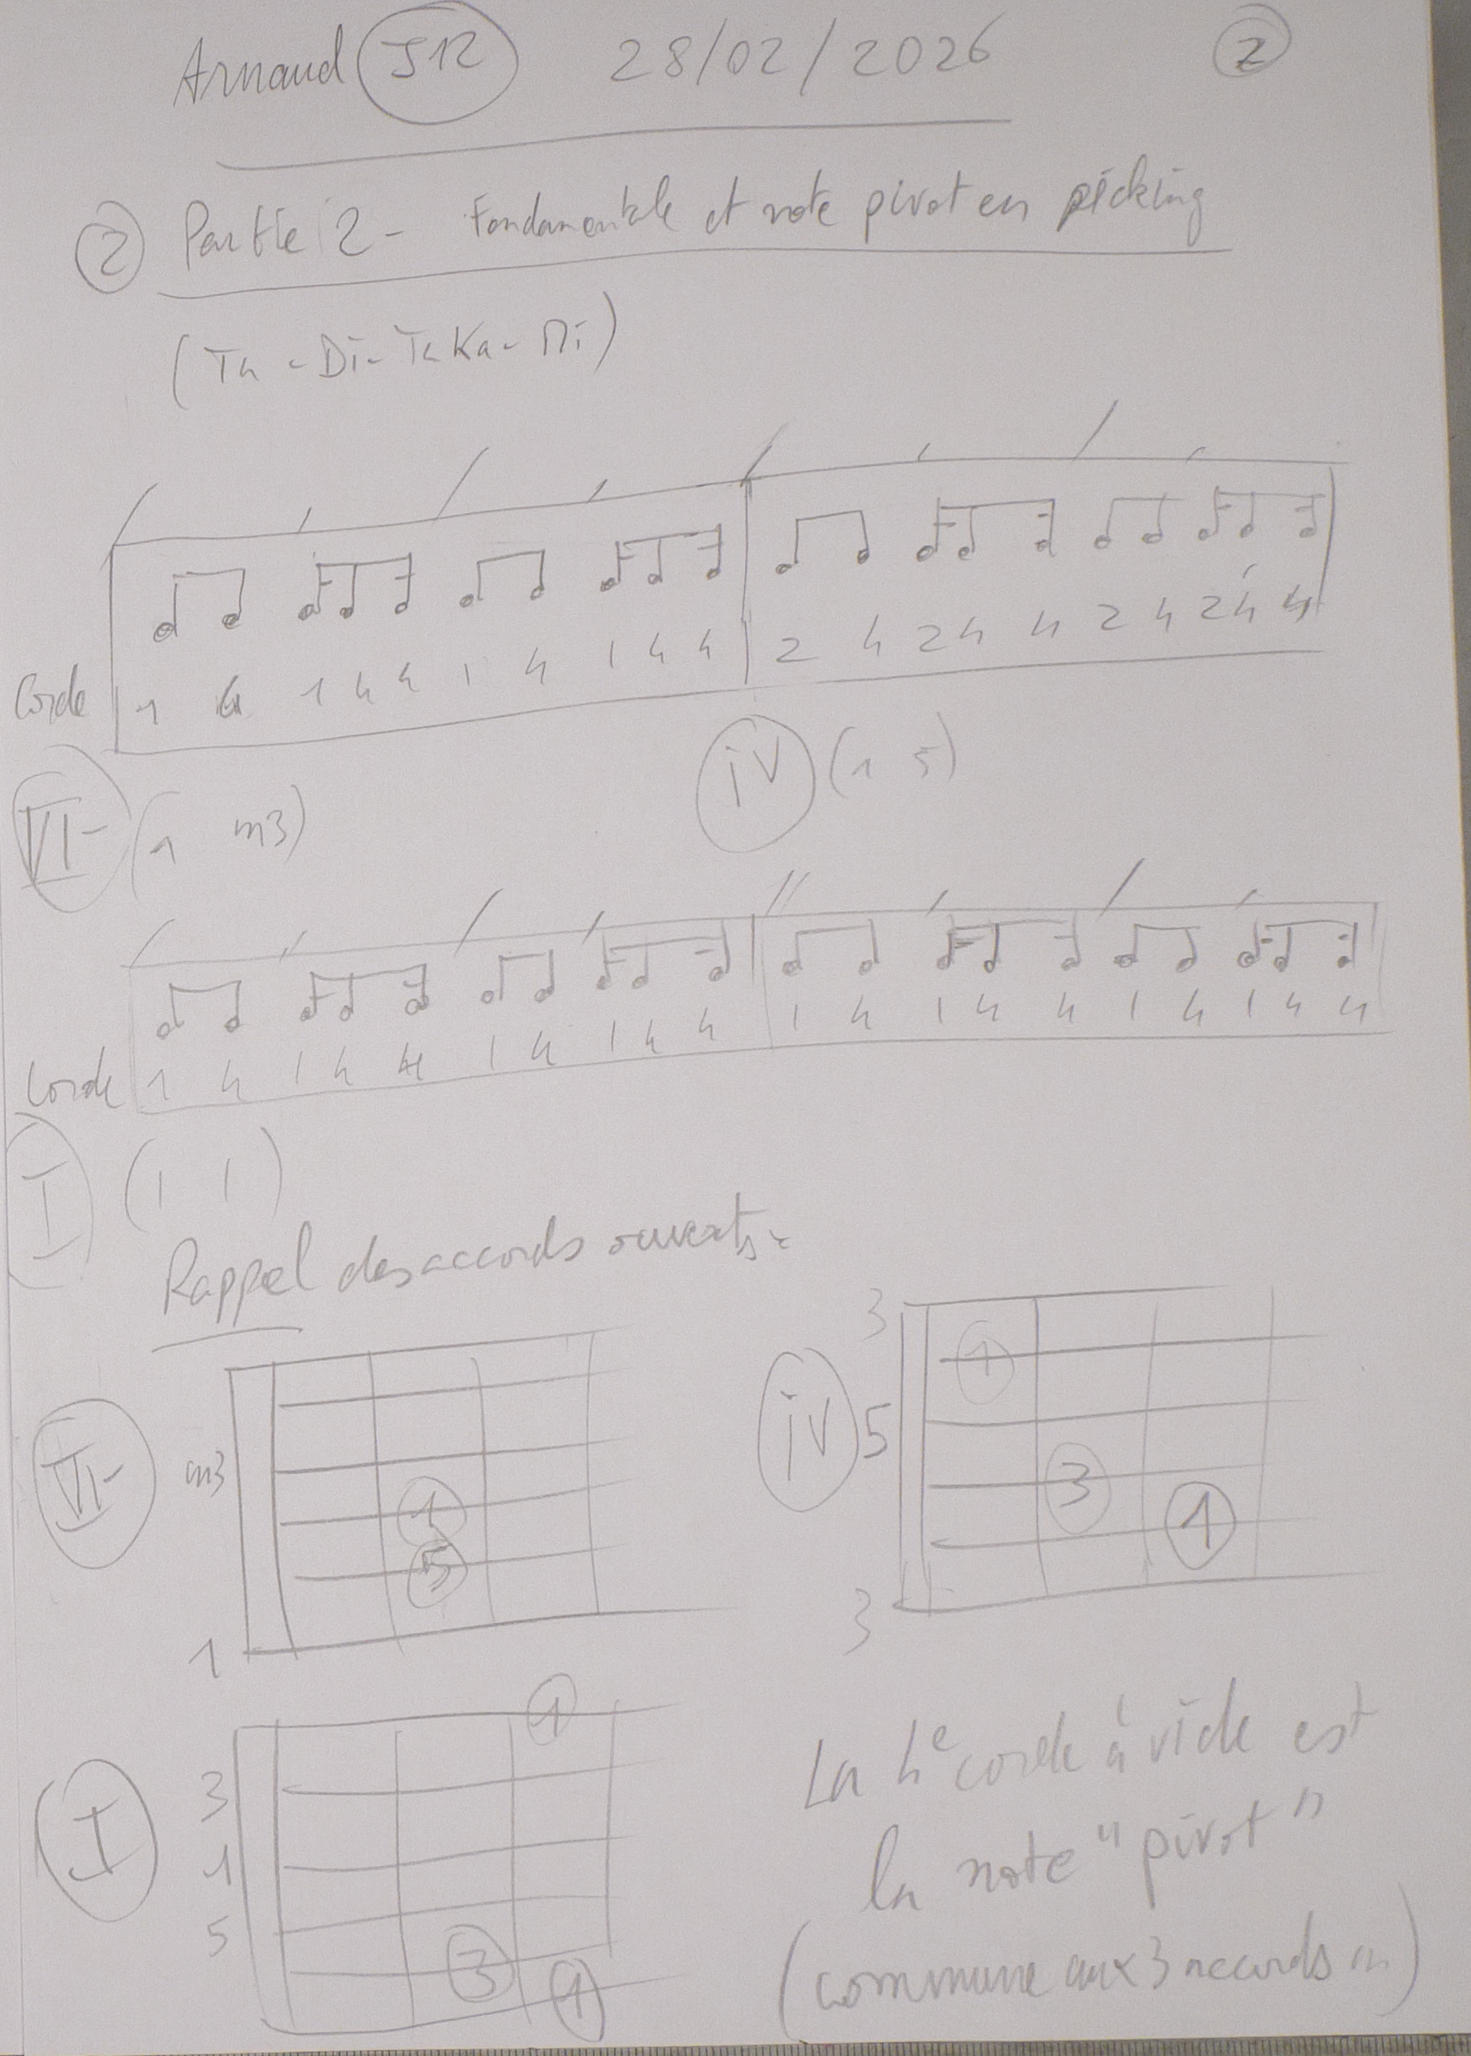 Arnaud J12 28/02/2026 2
2 Partie 2 - Fondamentale et note pivot en picking
(Ta - Di - TaKa - Di)
Corde 1 4 1 4 4 1 4 1 4 4 2 4 2 4 4 2 4 2 4 4
VI- (1 m3) iV (1 5)
Corde 1 4 1 4 4 1 4 1 4 4 1 4 1 4 4 1 4 1 4 4
I (1 1)
Rappel des accords ouverts
VI- m3 1 5 1
iV 3 1 5 3 1 3
I 1 3 1 5 3 1
La 4e corde à vide est
la note "pivot"
(commune aux 3 accords)